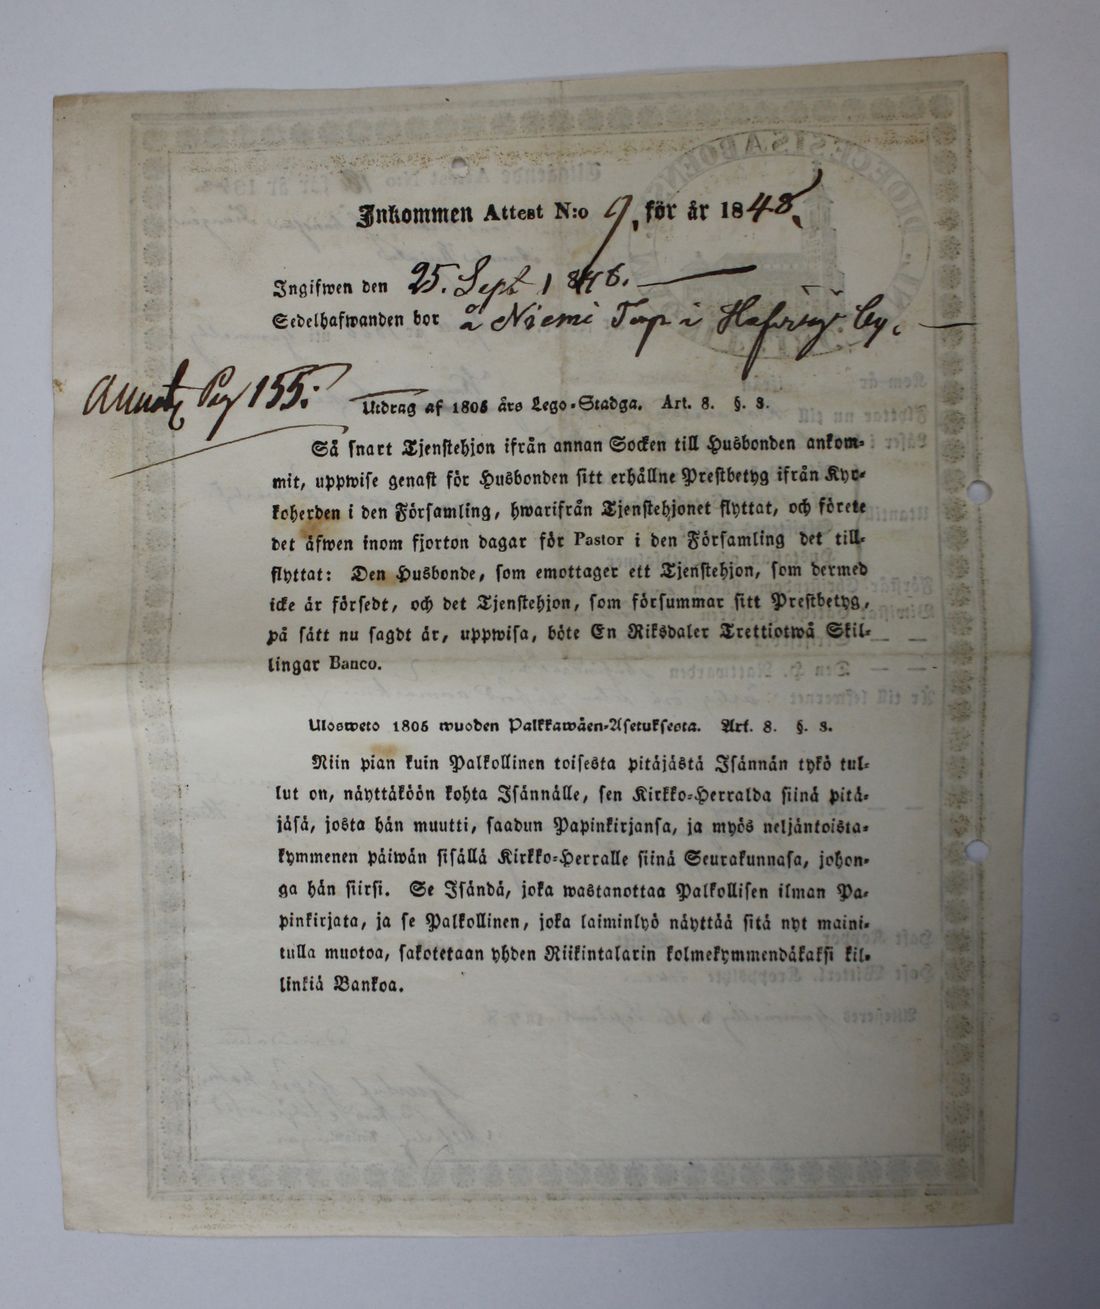 Inkommen Attest N:o 9, för år 1848,
Ingifwen den 25. Sept. 1848.
Sedelhafwanden bor å Niemi Torp i by.
Pag 155.
Utdrag af 1805 års Lego-Stadga. Art. 8. §. 3.
Så snart Tjenstehjon ifrån annan Socken till Husbonden ankom-
mit, uppwise genast för Husbonden sitt erhållne Prestbetyg ifrån Kyr-
koherden i den Församling, hwarifrån Tjenstehjonet flyttat, och förete
det äfwen inom fjorton dagar för Pastor i den Församling det till-
flyttat: Den Husbonde, som emottager ett Tjenstehjon, som dermed
icke är försedt, och det Tjenstehjon, som försummar sitt Prestbetyg,
på sätt nu sagdt är, uppwisa, böte En Riksdaler Trettiotwå Skil-
lingar Banco.
Ulosweto 1805 wuoden Palkkawäen-Asetuksesta. Art. 8. §. 3.
Niin pian kuin Palkollinen toisesta pitäjästä Isännän tykö tul-
lut on, näyttäköön kohta Isännälle, sen Kirkko-Herralda siinä pitä-
jäsä, josta hän muutti, saadun Papinkirjansa, ja myös neljäntoista-
kymmenen päiwän sisällä Kirkko-Herralle siinä Seurakunnasa, johon-
ga hän siirsi. Se Isändä, joka wastanottaa Palkollisen ilman Pa-
pinkirjata, ja se Palkollinen, joka laiminlyö näyttää sitä nyt maini-
tulla muotoa, sakotetaan yhden Riikintalarin kolmekymmendäkaksi kil-
linkiä Bankoa.